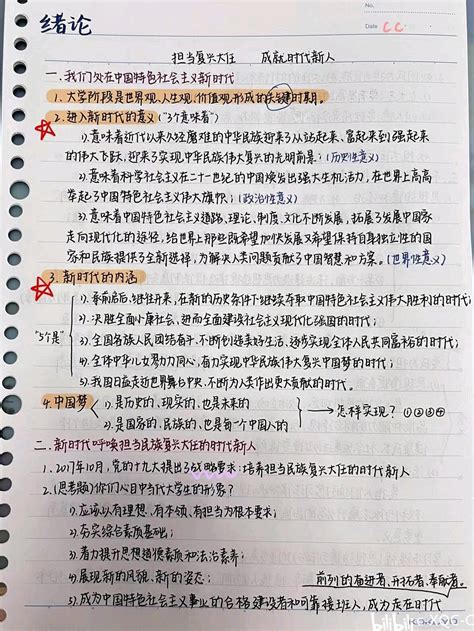 绪论
No.
Date CC
担当复兴大任 成就时代新人
一、我们处在中国特色社会主义新时代
1、大学阶段是世界观、人生观、价值观形成的关键时期。
2、进入新时代的意义("3个意味着")
1).意味着近代以来久经磨难的中华民族迎来了从站起来、富起来到强起来
的伟大飞跃,迎来了实现中华民族伟大复兴的光明前景;(历史性意义)
2).意味着科学社会主义在二十一世纪的中国焕发出强大生机活力,在世界上高高
举起了中国特色社会主义伟大旗帜;(政治性意义)
3).意味着中国特色社会主义道路、理论、制度、文化不断发展,拓展了发展中国家
走向现代化的途径,给世界上那些既希望加快发展又希望保持自身独立性的国
家和民族提供了全新选择,为解决人类问题贡献了中国智慧和方案。(世界性意义)
3、新时代的内涵
1).承前启后、继往开来、在新的历史条件下继续夺取中国特色社会主义伟大胜利的时代;
2).决胜全面小康社会、进而全面建设社会主义现代化强国的时代;
"5个是" 3).全国各族人民团结奋斗、不断创造美好生活、逐步实现全体人民共同富裕的时代;
4).全体中华儿女努力同心、奋力实现中华民族伟大复兴中国梦的时代;
5).我国日益走近世界舞台中央、不断为人类作出更大贡献的时代。
4、中国梦 1).是历史的、现实的、也是未来的 怎样实现? ①②③④
2).是国家的、民族的、也是每个中国人的
二、新时代呼唤担当民族复兴大任的时代新人
1、2017年10月,党的十九大提出了战略要求:培养担当民族复兴大任的时代新人
2、(思考题)你们心目中当代大学生的形象?
1).应该以有理想、有本领、有担当为根本要求;
2).夯实综合素质基础;
3).着力提升思想道德素质和法治素养;
4).展现新的风貌、新的姿态; 前列的奋进者、开拓者、奉献者。
5).成为中国特色社会主义事业的合格建设者和可靠接班人,成为走在时代
bilibili